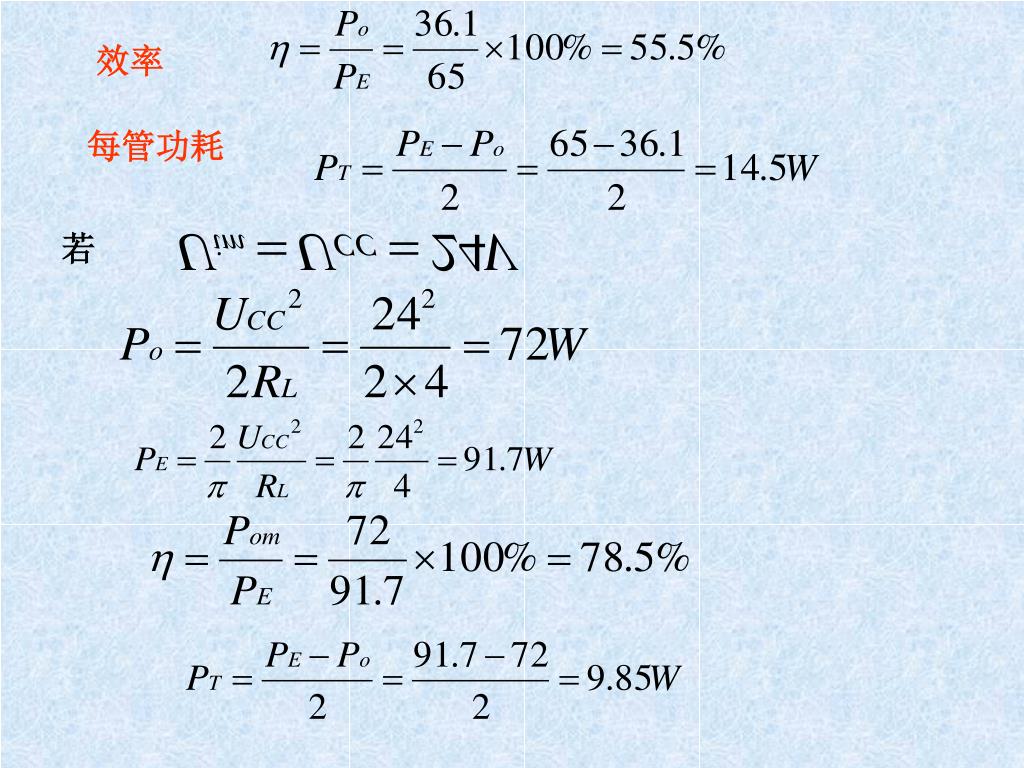 效率 η = Po/PE = 36.1/65 ×100% = 55.5%
每管功耗 PT = (PE − Po)/2 = (65 − 36.1)/2 = 14.5W
若 Uim = UCC = 24V
Po = UCC²/2RL = 24²/(2×4) = 72W
PE = 2/π UCC²/RL = 2/π 24²/4 = 91.7W
η = Pom/PE = 72/91.7 ×100% = 78.5%
PT = (PE − Po)/2 = (91.7 − 72)/2 = 9.85W